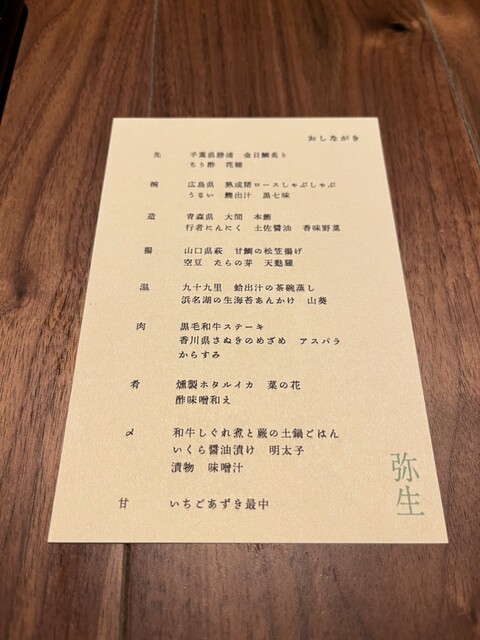 おしながき
先 千葉県勝浦 金目鯛炙り
ちり酢 花穂
椀 広島県 熟成猪ロースしゃぶしゃぶ
うるい 鰹出汁 黒七味
造 青森県 大間 本鮪
行者にんにく 土佐醤油 香味野菜
揚 山口県萩 甘鯛の松笠揚げ
空豆 たらの芽 天麩羅
温 九十九里 蛤出汁の茶碗蒸し
浜名湖の生海苔あんかけ 山葵
肉 黒毛和牛ステーキ
香川県さぬきのめざめ アスパラ
からすみ
肴 燻製ホタルイカ 菜の花
酢味噌和え
〆 和牛しぐれ煮と蕨の土鍋ごはん
いくら醤油漬け 明太子
漬物 味噌汁
甘 いちごあずき最中
弥生